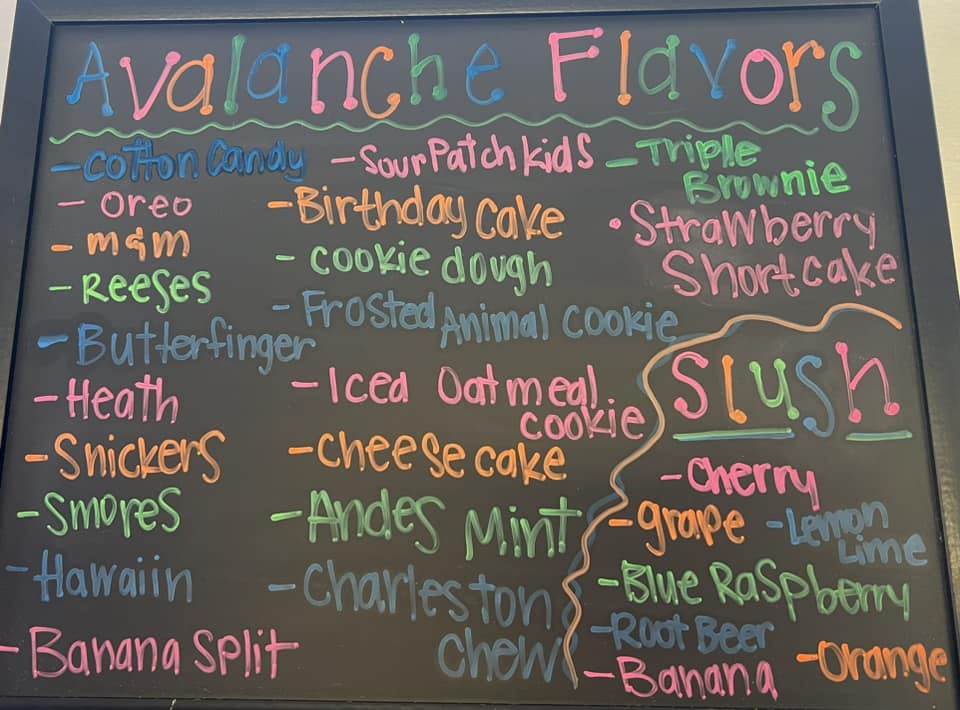 Avalanche Flavors
- Cotton Candy
- Oreo
- m&m
- Reeses
- Butterfinger
- Heath
- Snickers
- Smores
- Hawaiin
- Banana Split
- Sour Patch kids
- Birthday Cake
- cookie dough
- Frosted Animal Cookie
- Iced Oatmeal
cookie
- cheesecake
- Andes Mint
- Charleston
chew
- Triple
Brownie
• Strawberry
Shortcake
Slush
- Cherry
- grape
- Lemon
Lime
- Blue Raspberry
- Root Beer
- Banana
- Orange